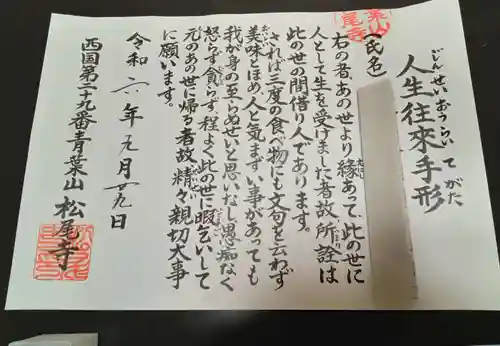 人生往來手形
じんせいおうらいてがた
(氏名)
右の者、あの世より縁あって、此の世に
人として生を受けました者故所詮は
此の世の間借り人であります。
されば三度の食べ物にも文句を云わず
美味とほめ、人と気まずい事があっても
我が身の至らぬせいと思いなし愚痴なく
怒らず貪らず程よく此の世に暇乞いして
元のあの世に帰る者故精々親切大事
に願います。
令和六年九月廿九日
西国第二十九番青葉山 松尾寺